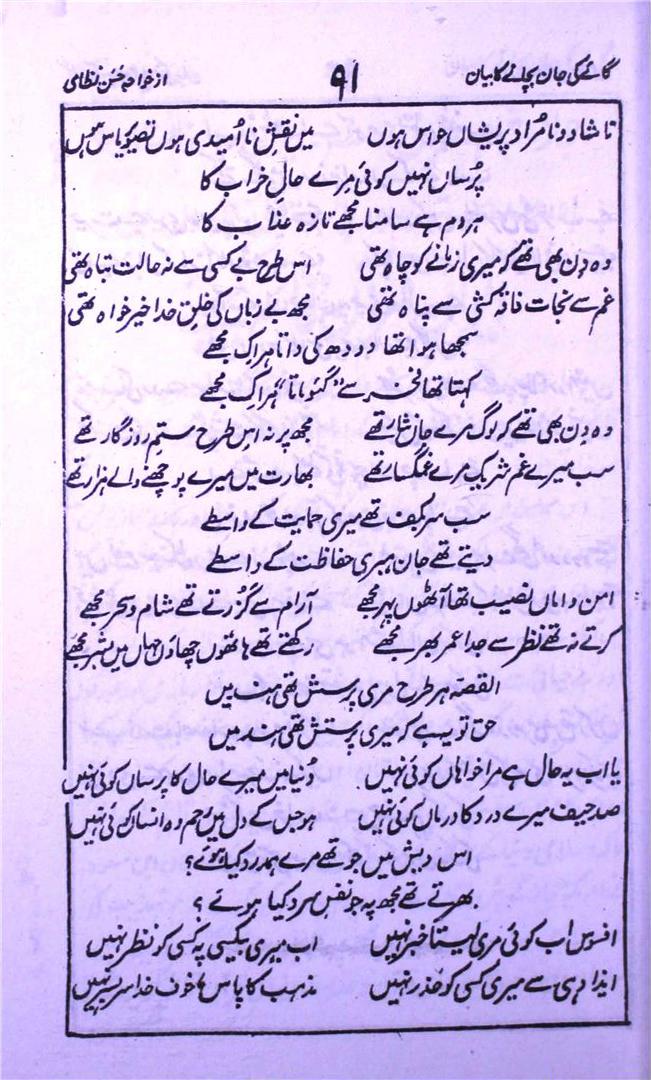 گائے کی جان بچانے کا بیان ۹۱ از خواجہ حسن نظامی
ناشاد و نامراد پریشاں حواس ہوں میں نقشِ ناامیدی ہوں تصویرِ یاس ہوں
پُرساں نہیں کوئی مرے حالِ خراب کا
ہر دم ہے سامنا مجھے تازہ عذاب کا
وہ دن بھی تھے کہ میری زمانے کو چاہ تھی اس طرح بے کسی سے نہ حالت تباہ تھی
غم سے نجات فاقہ کشی سے پناہ تھی مجھ بے زباں کی خلقِ خدا خیر خواہ تھی
سمجھا ہوا تھا دودھ کی داتا ہر اک مجھے
کہتا تھا فخر سے "گئو ماتا" ہر اک مجھے
وہ دن بھی تھے کہ لوگ مرے جاں نثار تھے مجھ پر نہ اس طرح ستمِ روزگار تھے
سب میرے غم شریک مرے غمگسار تھے بھارت میں میرے پوچھنے والے ہزار تھے
سب سر بکف تھے میری حمایت کے واسطے
دیتے تھے جان میری حفاظت کے واسطے
امن و اماں نصیب تھا آٹھوں پہر مجھے آرام سے گزرتے تھے شام و سحر مجھے
کرتے نہ تھے نظر سے جدا عمر بھر مجھے رکھتے تھے ہاتھوں چھاؤں جہاں میں بشر مجھے
القصہ ہر طرح مری پرستش تھی ہند میں
حق تو یہ ہے کہ میری پرستش تھی ہند میں
یا اب یہ حال ہے مرا خواہاں کوئی نہیں دُنیا میں میرے حال کا پرساں کوئی نہیں
صد حیف میرے درد کا درماں کوئی نہیں ہو جس کے دل میں رحم وہ انساں کوئی نہیں
اس دیش میں جو تھے مرے ہمدرد کیا ہوئے؟
بھرتے تھے مجھ پہ جو نفسِ سرد کیا ہوئے؟
افسوس اب کوئی مری لیتا خبر نہیں اب میری بیکسی پہ کسی کو نظر نہیں
ایذا دہی سے میری کسی کو حذر نہیں مذہب کا پاس خوف خدا سربسر نہیں